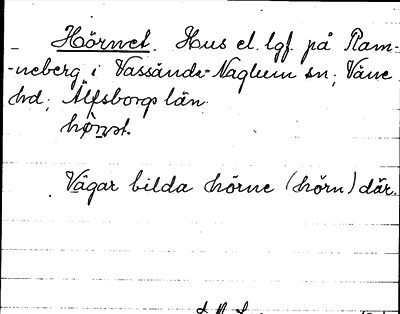 Hörnet. Hus el. lgf. på Ram-
neberg i Vassända-Naglum sn; Väne
hd; Älfsborgs län.
hö̱rnet.
Vägar bilda hörne (hörn) där.